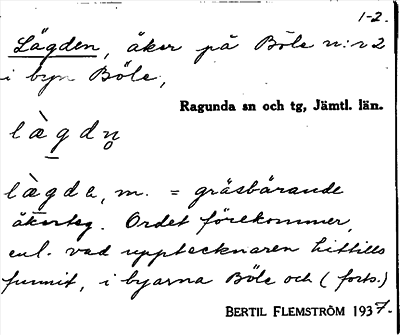 1-2.
Lägden, åker på Böle n:r 2
i byn Böle,
Ragunda sn och tg, Jämtl. län.
làgdn̥
làgda, m. = gräsbärande
åkerteg. Ordet förekommer,
enl. vad upptecknaren hittills
funnit, i byarna Böle och (forts.)
BERTIL FLEMSTRÖM 1937.